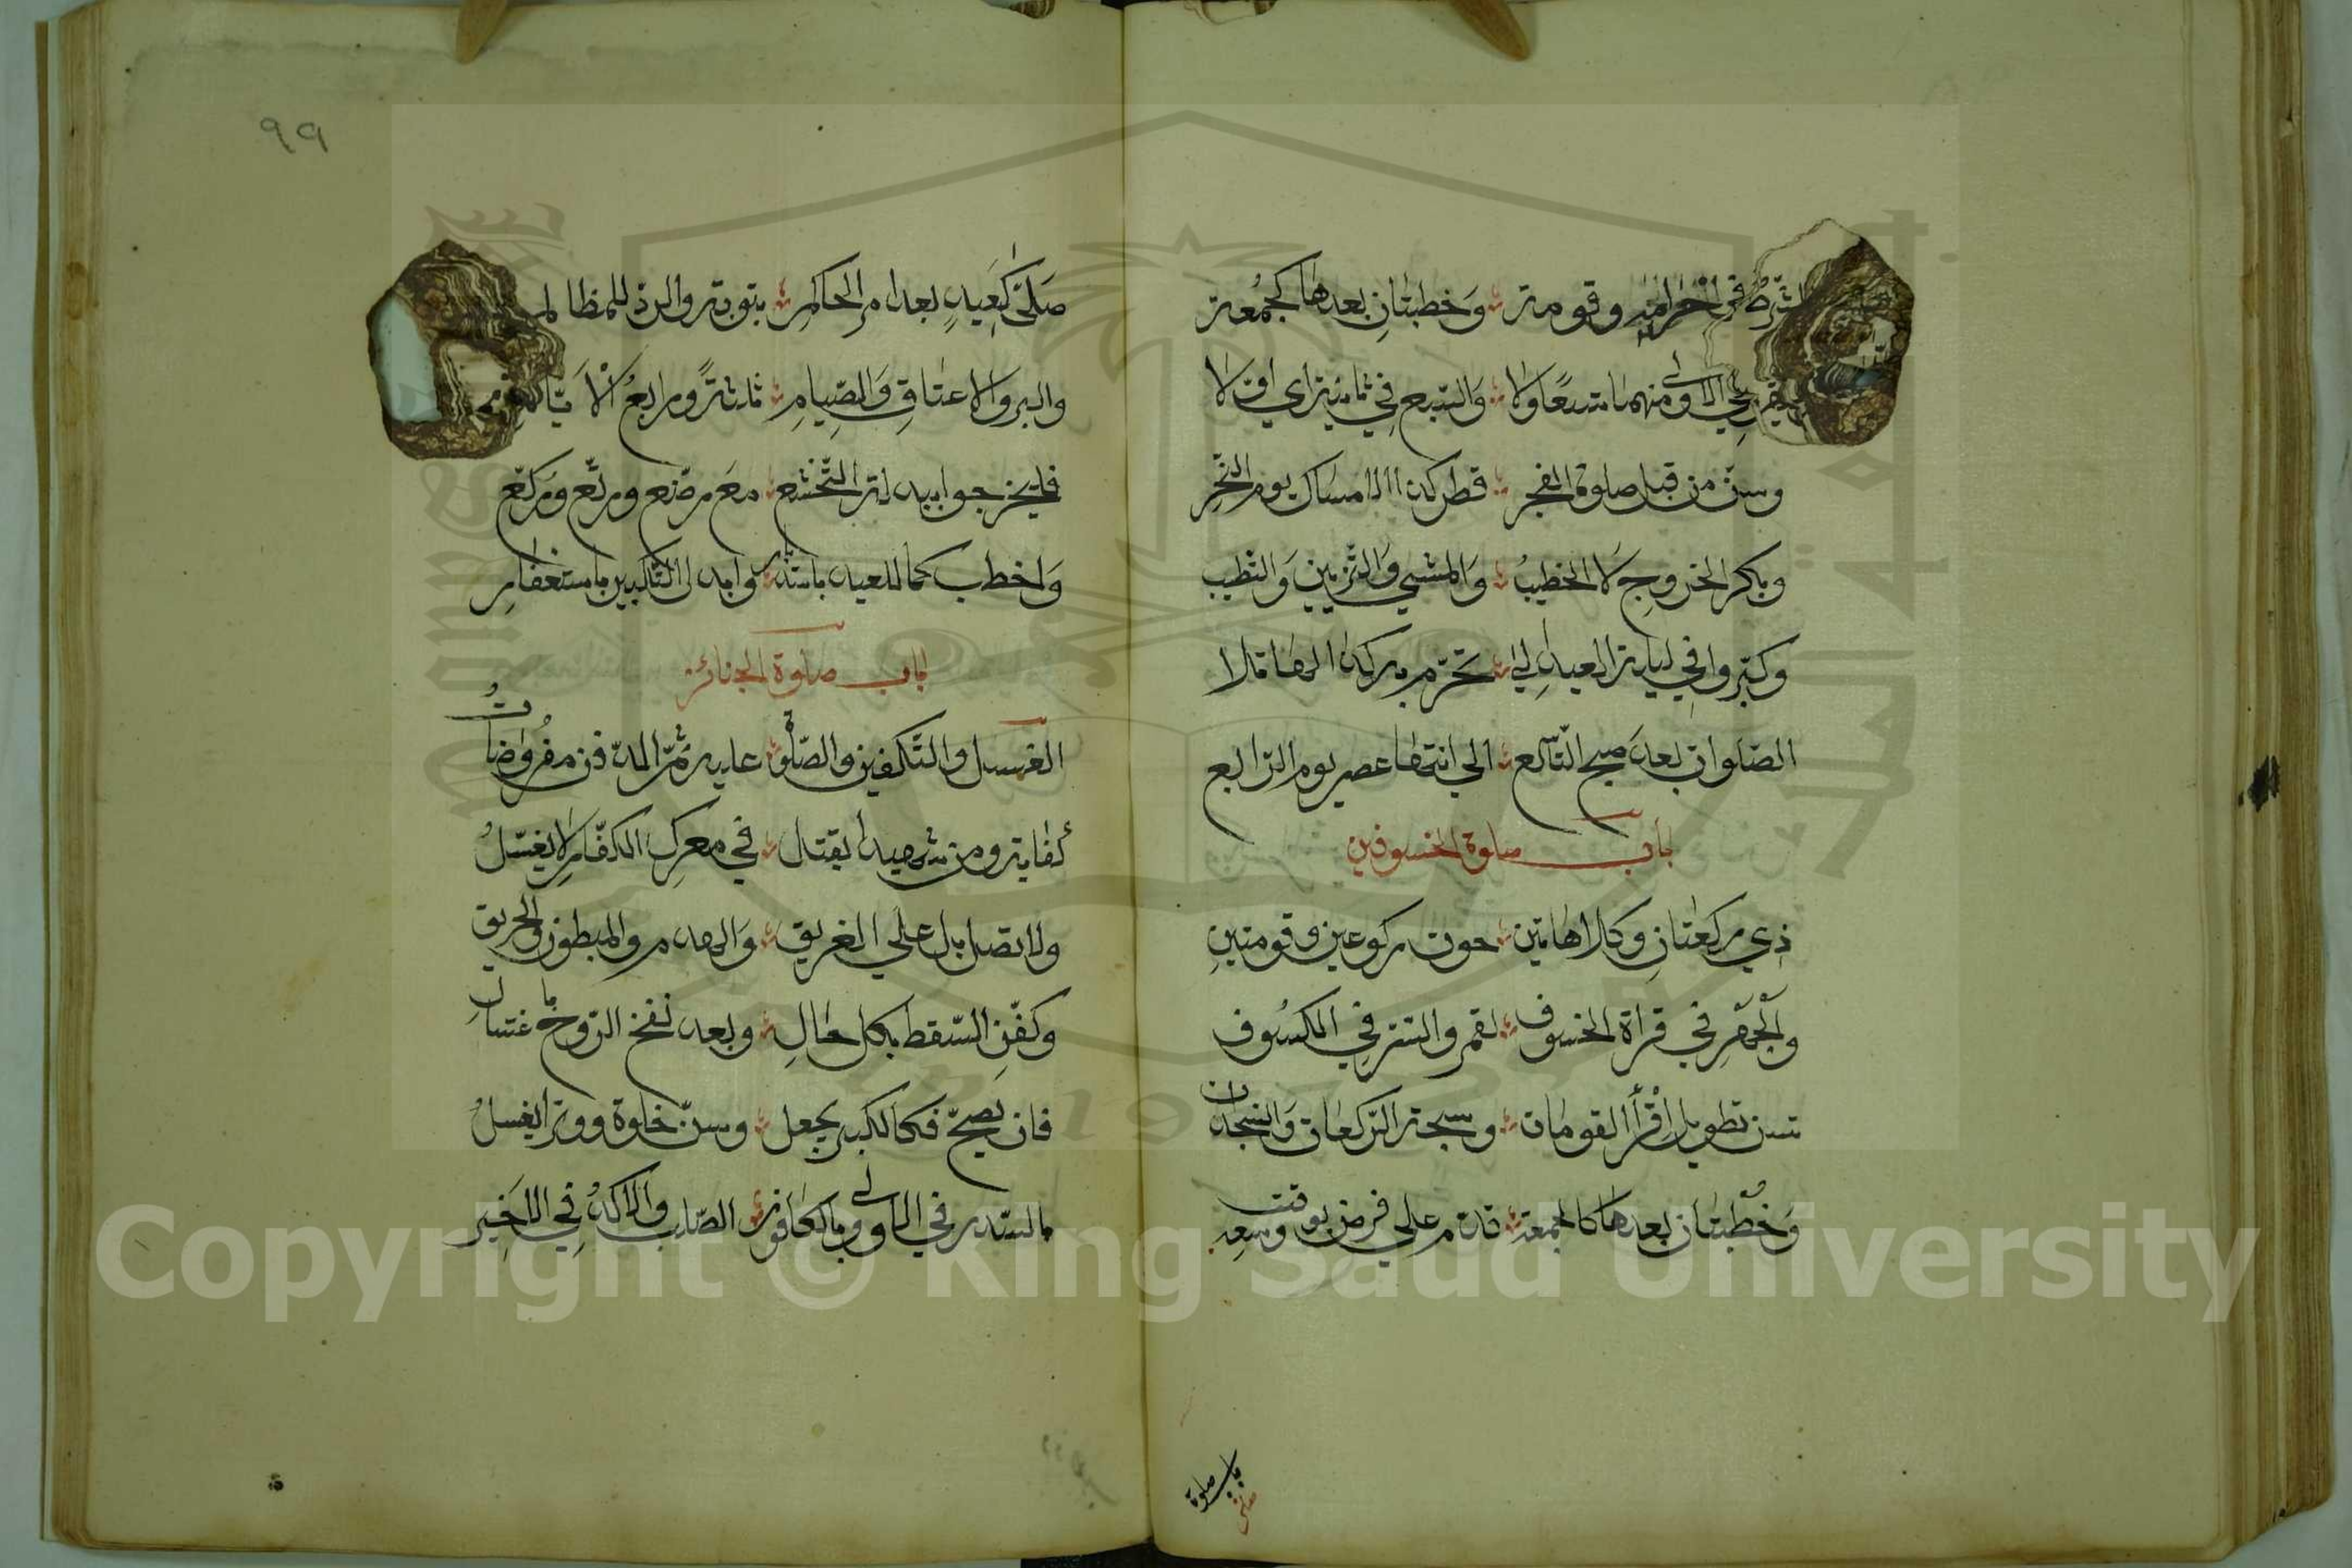 الشرط في احرامه وقومة وخطبتان بعدها كجمعة
الاولى منهما تسعا ولا والسبع في ثانية اي اولا
وسن من قبل صلوة الفجر فطر كذا الامساك يوم النحر
وبكر الخروج لا الخطيب والمشي والتزيين والتطيب
وكبروا في ليلة العيد الي تحرم بركذا لما تلا
الصلوات بعد صبح التاسع الي انتها عصر يوم الرابع
باب صلوة الخسوفين
ذي ركعتان وكلا هاتين حوت ركوعين وقومتين
والجهر في قراة الخسوف لقمر والستر في الكسوف
تسن تطويل اقرأ القومات وسبحة الركعات والسجدات
وخطبتان بعدها كالجمعة قدم علي فرض بوقت وسعه
باب صلوة
٩٩
صلي كعيد بعد امر الحاكم بتوبة والرد للمظالم
والبر والاعتاق والصيام ثلثة ورابع الايام
فليخرجوا ببذلة التخشع مع رضع ورتع وركع
واخطب كما للعيد باستدبار وابدل التكبير باستغفار
باب صلوة الجنائز
الغسل والتكفين والصلوة عليه ثم الدفن مفروضات
كفاية ومن شهيدا يقتل في معرك الكفار لا يغسل
ولا تصل بل علي الغريق والهدم والمبطون والحريق
وكفن السقط بكل حال وبعد نفخ الروح باغتسال
فان يصح فكالكبير يجعل وسن خلوة ووترا يغسل
بالسدر في الاولى وبالكافور الصلب والآكد في الاخير